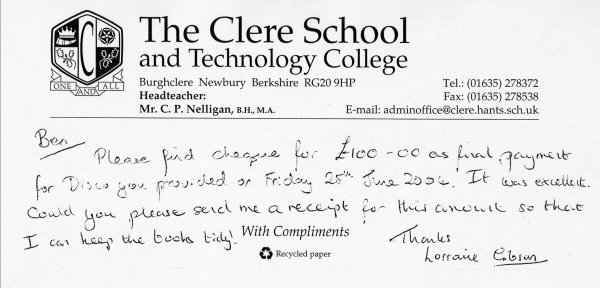 The Clere School
and Technology College
Burghclere Newbury Berkshire RG20 9HP
Headteacher:
Mr. C. P. Nelligan, B.H., M.A.
Tel.: (01635) 278372
Fax: (01635) 278538
E-mail: adminoffice@clere.hants.sch.uk
C
ONE AND ALL
Ben
Please find cheque for £100-00 as final payment
for Disco you provided on Friday 25th June 2004. It was excellent.
Could you please send me a receipt for this amount so that
I can keep the books tidy!
With Compliments
Recycled paper
Thanks
Lorraine